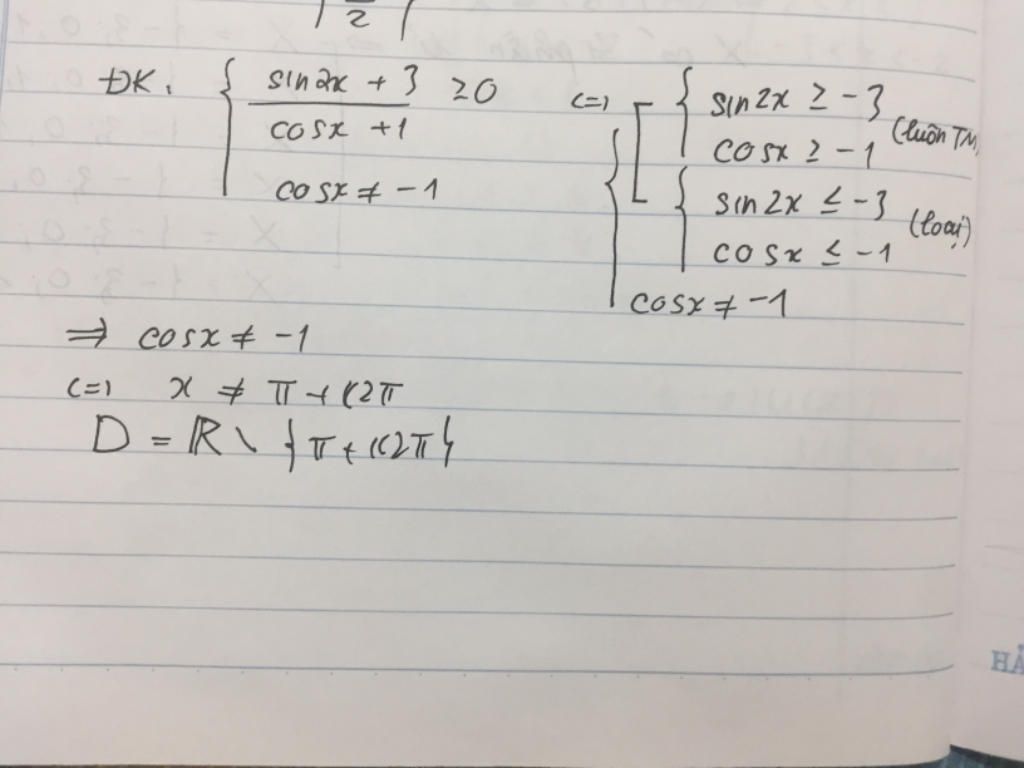 2
ĐK: { (sin2x + 3)/(cosx + 1) ≥ 0
cosx ≠ -1
<=> [ { sin2x ≥ -3
cosx ≥ -1 (luôn TM)
{ sin2x ≤ -3
cosx ≤ -1 (loại)
cosx ≠ -1
=> cosx ≠ -1
<=> x ≠ π + k2π
D = ℝ \ {π + k2π}
HÀ